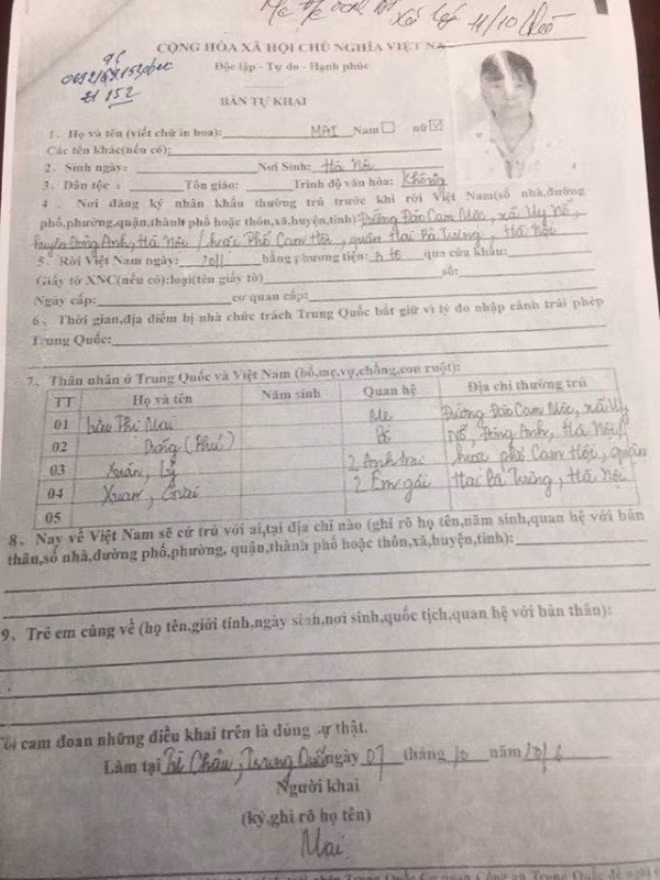 11/10
CỘNG HÒA XÃ HỘI CHỦ NGHĨA VIỆT NA
Độc lập - Tự do - Hạnh phúc
152
BẢN TỰ KHAI
1、Họ và tên (viết chữ in hoa): MAI Nam☐ nữ☑
Các tên khác(nếu có):
2、Sinh ngày: Nơi Sinh: Hà Nội
3、Dân tộc : Tôn giáo: Trình độ văn hóa: Không
4 、Nơi đăng ký nhân khẩu thường trú trước khi rời Việt Nam(số nhà,đường
phố,phường,quận,thành phố hoặc thôn,xã,huyện,tỉnh) Đường Đào Cam Mộc, xã Uy Nỗ,
huyện Đông Anh, Hà Nội / hoặc Phố Cam Hội, quận Hai Bà Trưng, Hà Nội
5、Rời Việt Nam ngày: 2011 bằng phương tiện: ô tô qua cửa khẩu:
Giấy tờ XNC(nếu có):loại(tên giấy tờ) số:
Ngày cấp: cơ quan cấp:
6、Thời gian,địa điểm bị nhà chức trách Trung Quốc bắt giữ vì lý do nhập cảnh trái phép
Trung Quốc:
7、Thân nhân ở Trung Quốc và Việt Nam (bố,mẹ,vợ,chồng,con ruột):
TT Họ và tên Năm sinh Quan hệ Địa chỉ thường trú
01 Thi Mai Mẹ Đường Đào Cam Mộc, xã Uy
02 (Phú) Bố Nỗ, Đông Anh, Hà Nội /
03 Xuân, 2 Anh trai hoặc phố Cam Hội, quận
04 Xuan, 2 Em gái Hai Bà Trưng, Hà Nội
05
8、Nay về Việt Nam sẽ cư trú với ai,tại địa chỉ nào (ghi rõ họ tên,năm sinh,quan hệ với bản
thân,số nhà,đường phố,phường, quận,thành phố hoặc thôn,xã,huyện,tỉnh):
9、Trẻ em cùng về (họ tên,giới tính,ngày sinh,nơi sinh,quốc tịch,quan hệ với bản thân):
Tôi cam đoan những điều khai trên là đúng sự thật.
Làm tại Châu, Trung Quốc ngày 07 tháng 10 năm
Người khai
(ký,ghi rõ họ tên)
Mai